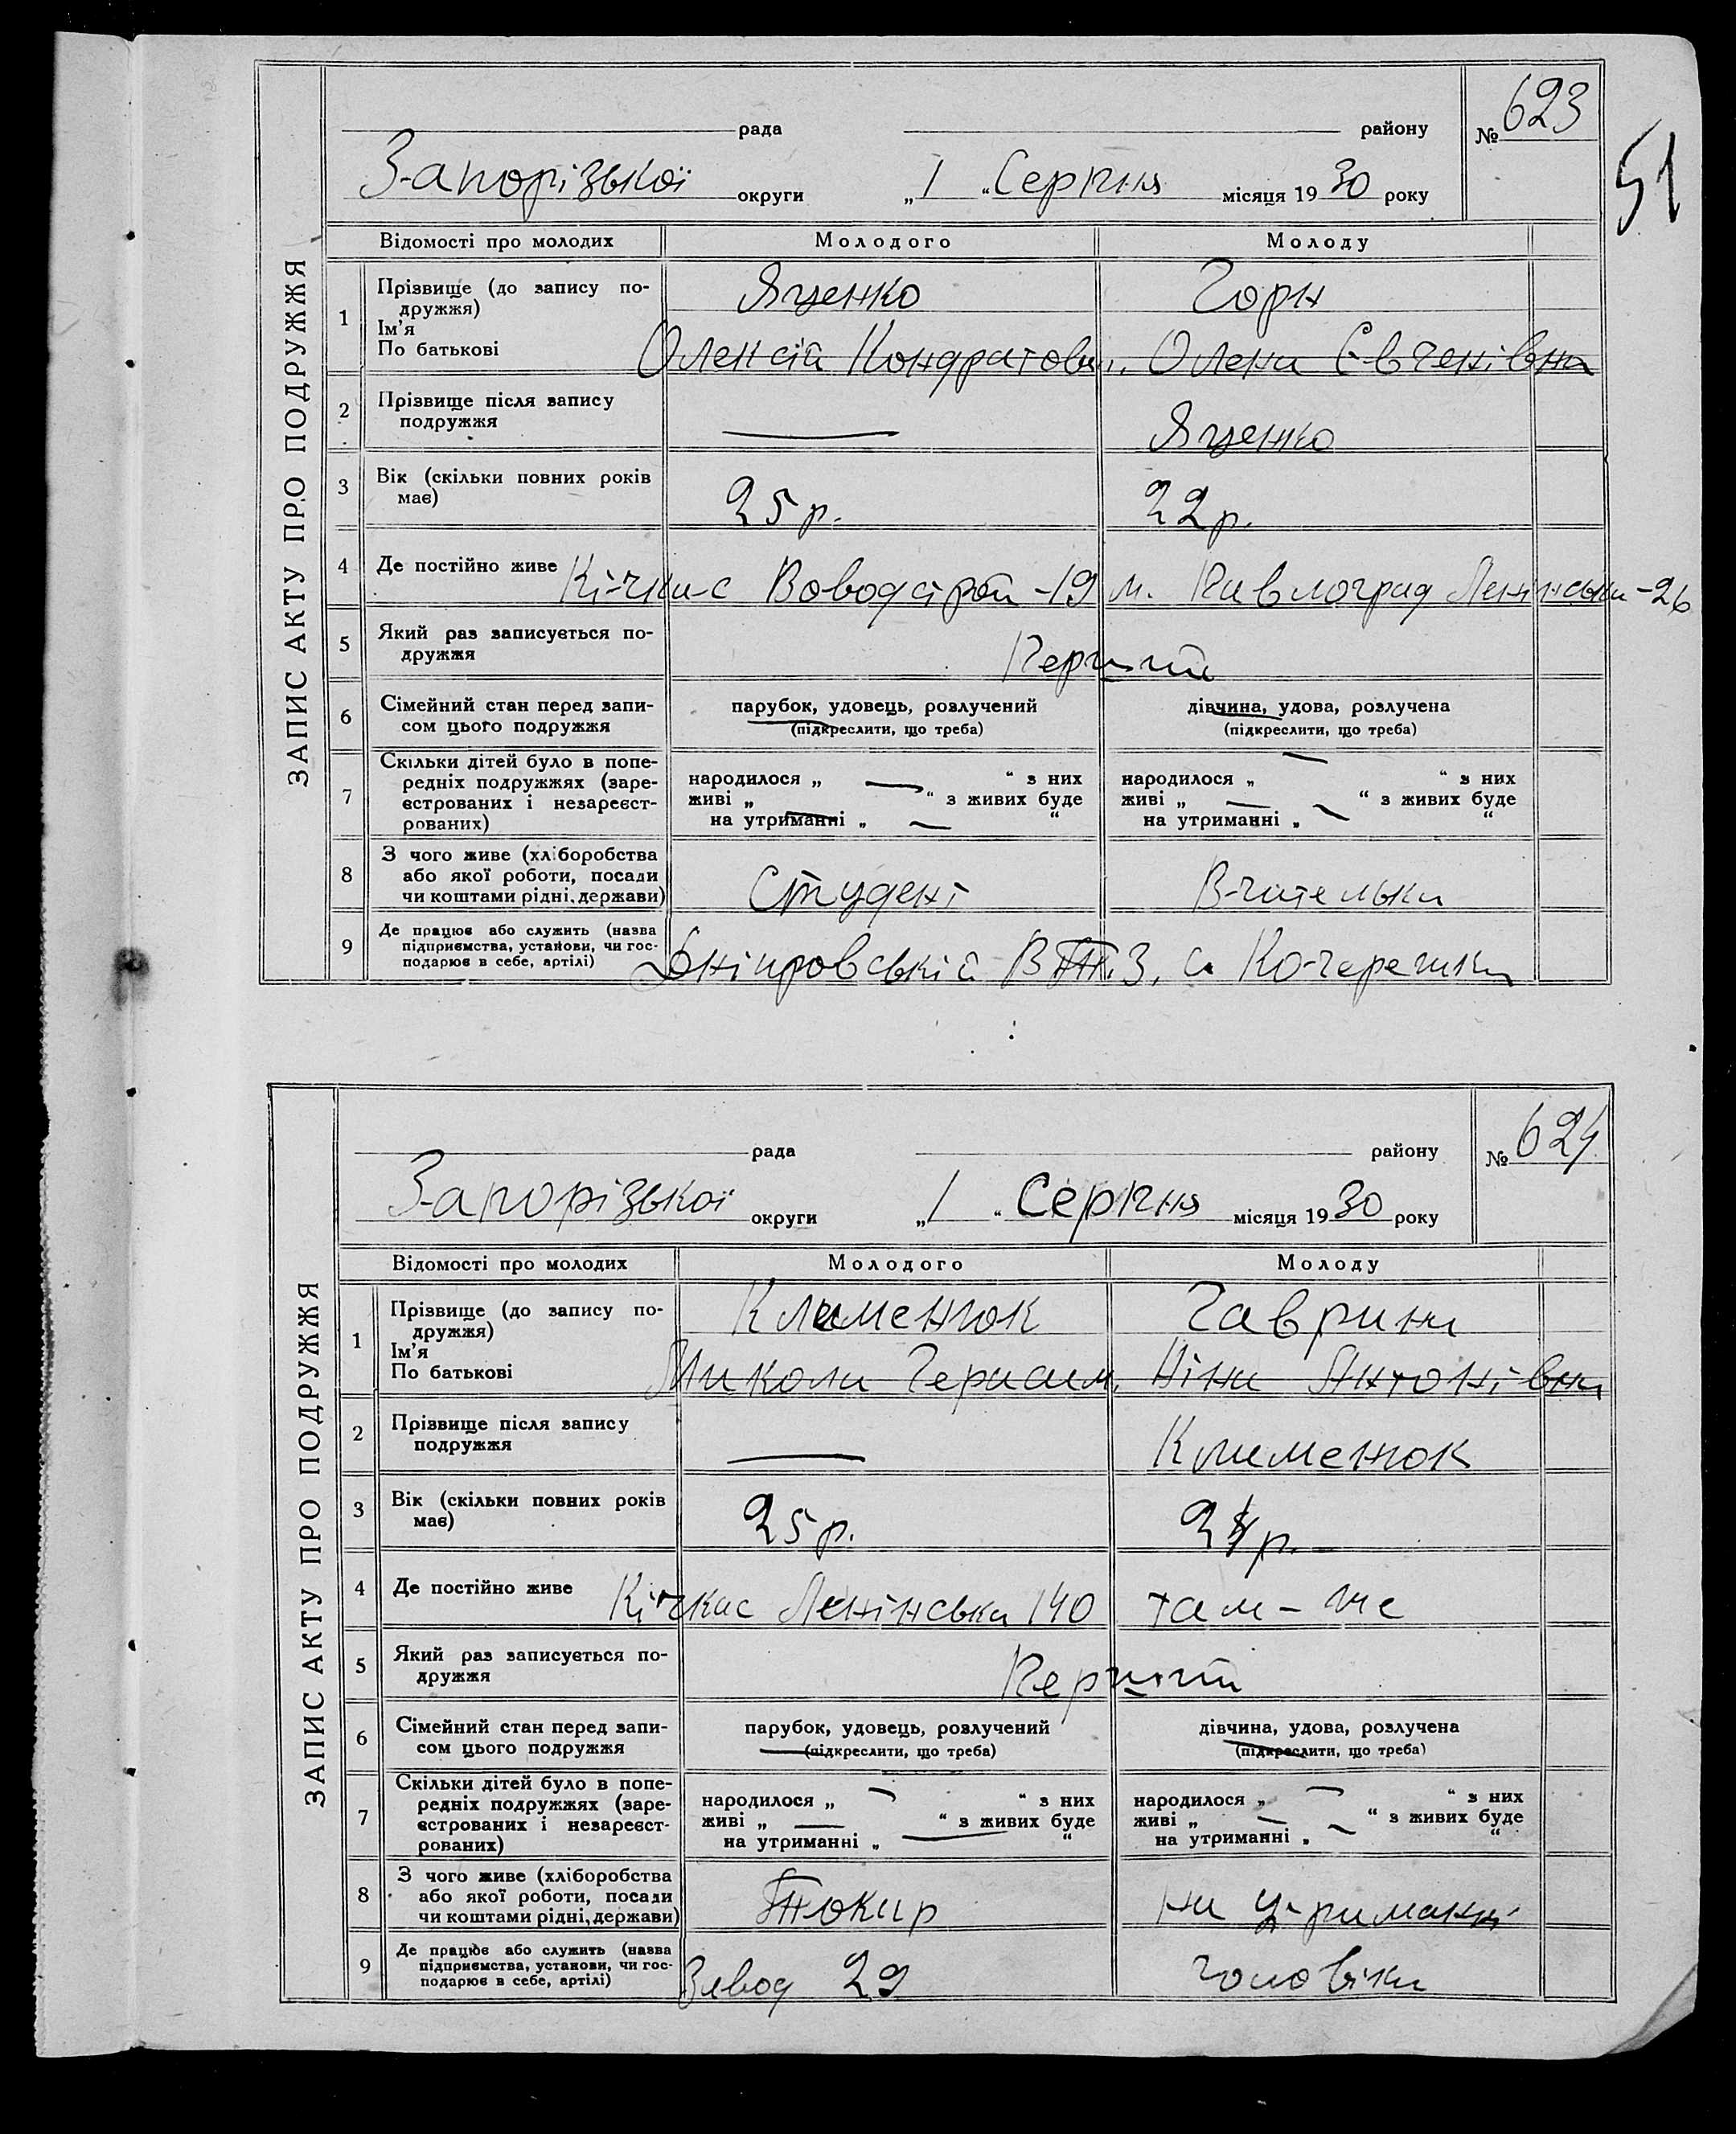 51
ЗАПИС АКТУ ПРО ПОДРУЖЖЯ
рада району № 623
Запорізької округи „1“ Серпня місяця 1930 року
Відомості про молодих Молодого Молоду
1 Прізвище (до запису по-
дружжя)
Ім'я
По батькові
Яценко Горн
Олексій Кондратович. Олена Євгенівна
2 Прізвище після запису
подружжя
— Яценко
3 Вік (скільки повних років
має)
25 р. 22 р.
4 Де постійно живе Кічкас -19 м. Павлоград Ленінська-26
5 Який раз записується по-
дружжя
Перший
6 Сімейний стан перед запи-
сом цього подружжя
парубок, удовець, розлучений дівчина, удова, розлучена
(підкреслити, що треба) (підкреслити, що треба)
7 Скільки дітей було в попе-
редніх подружжях (заре-
єстрованих і незареєст-
рованих)
народилося „ — “ з них народилося „ — “ з них
живі „ — “ з живих буде живі „ — “ з живих буде
на утриманні „ — “ на утриманні „ — “
8 З чого живе (хліборобства
або якої роботи, посади
чи коштами рідні, держави)
Студент Вчителька
9 Де працює або служить (назва
підприємства, установи, чи гос-
подарює в себе, артілі)
Дніпровській В.Т.З. с. Кочережки
ЗАПИС АКТУ ПРО ПОДРУЖЖЯ
рада району № 624
Запорізької округи „1“ Серпня місяця 1930 року
Відомості про молодих Молодого Молоду
1 Прізвище (до запису по-
дружжя)
Ім'я
По батькові
Клименюк Гаврина
Микола Герасим. Ніна Антонівна
2 Прізвище після запису
подружжя
— Клименюк
3 Вік (скільки повних років
має)
25 р. р.
4 Де постійно живе Кічкас Ленінська 140 там-же
5 Який раз записується по-
дружжя
Перший
6 Сімейний стан перед запи-
сом цього подружжя
парубок, удовець, розлучений дівчина, удова, розлучена
(підкреслити, що треба) (підкреслити, що треба)
7 Скільки дітей було в попе-
редніх подружжях (заре-
єстрованих і незареєст-
рованих)
народилося „ — “ з них народилося „ — “ з них
живі „ — “ з живих буде живі „ — “ з живих буде
на утриманні „ — “ на утриманні „ — “
8 З чого живе (хліборобства
або якої роботи, посади
чи коштами рідні, держави)
Токар на утриманні
9 Де працює або служить (назва
підприємства, установи, чи гос-
подарює в себе, артілі)
Завод 29 чоловіка